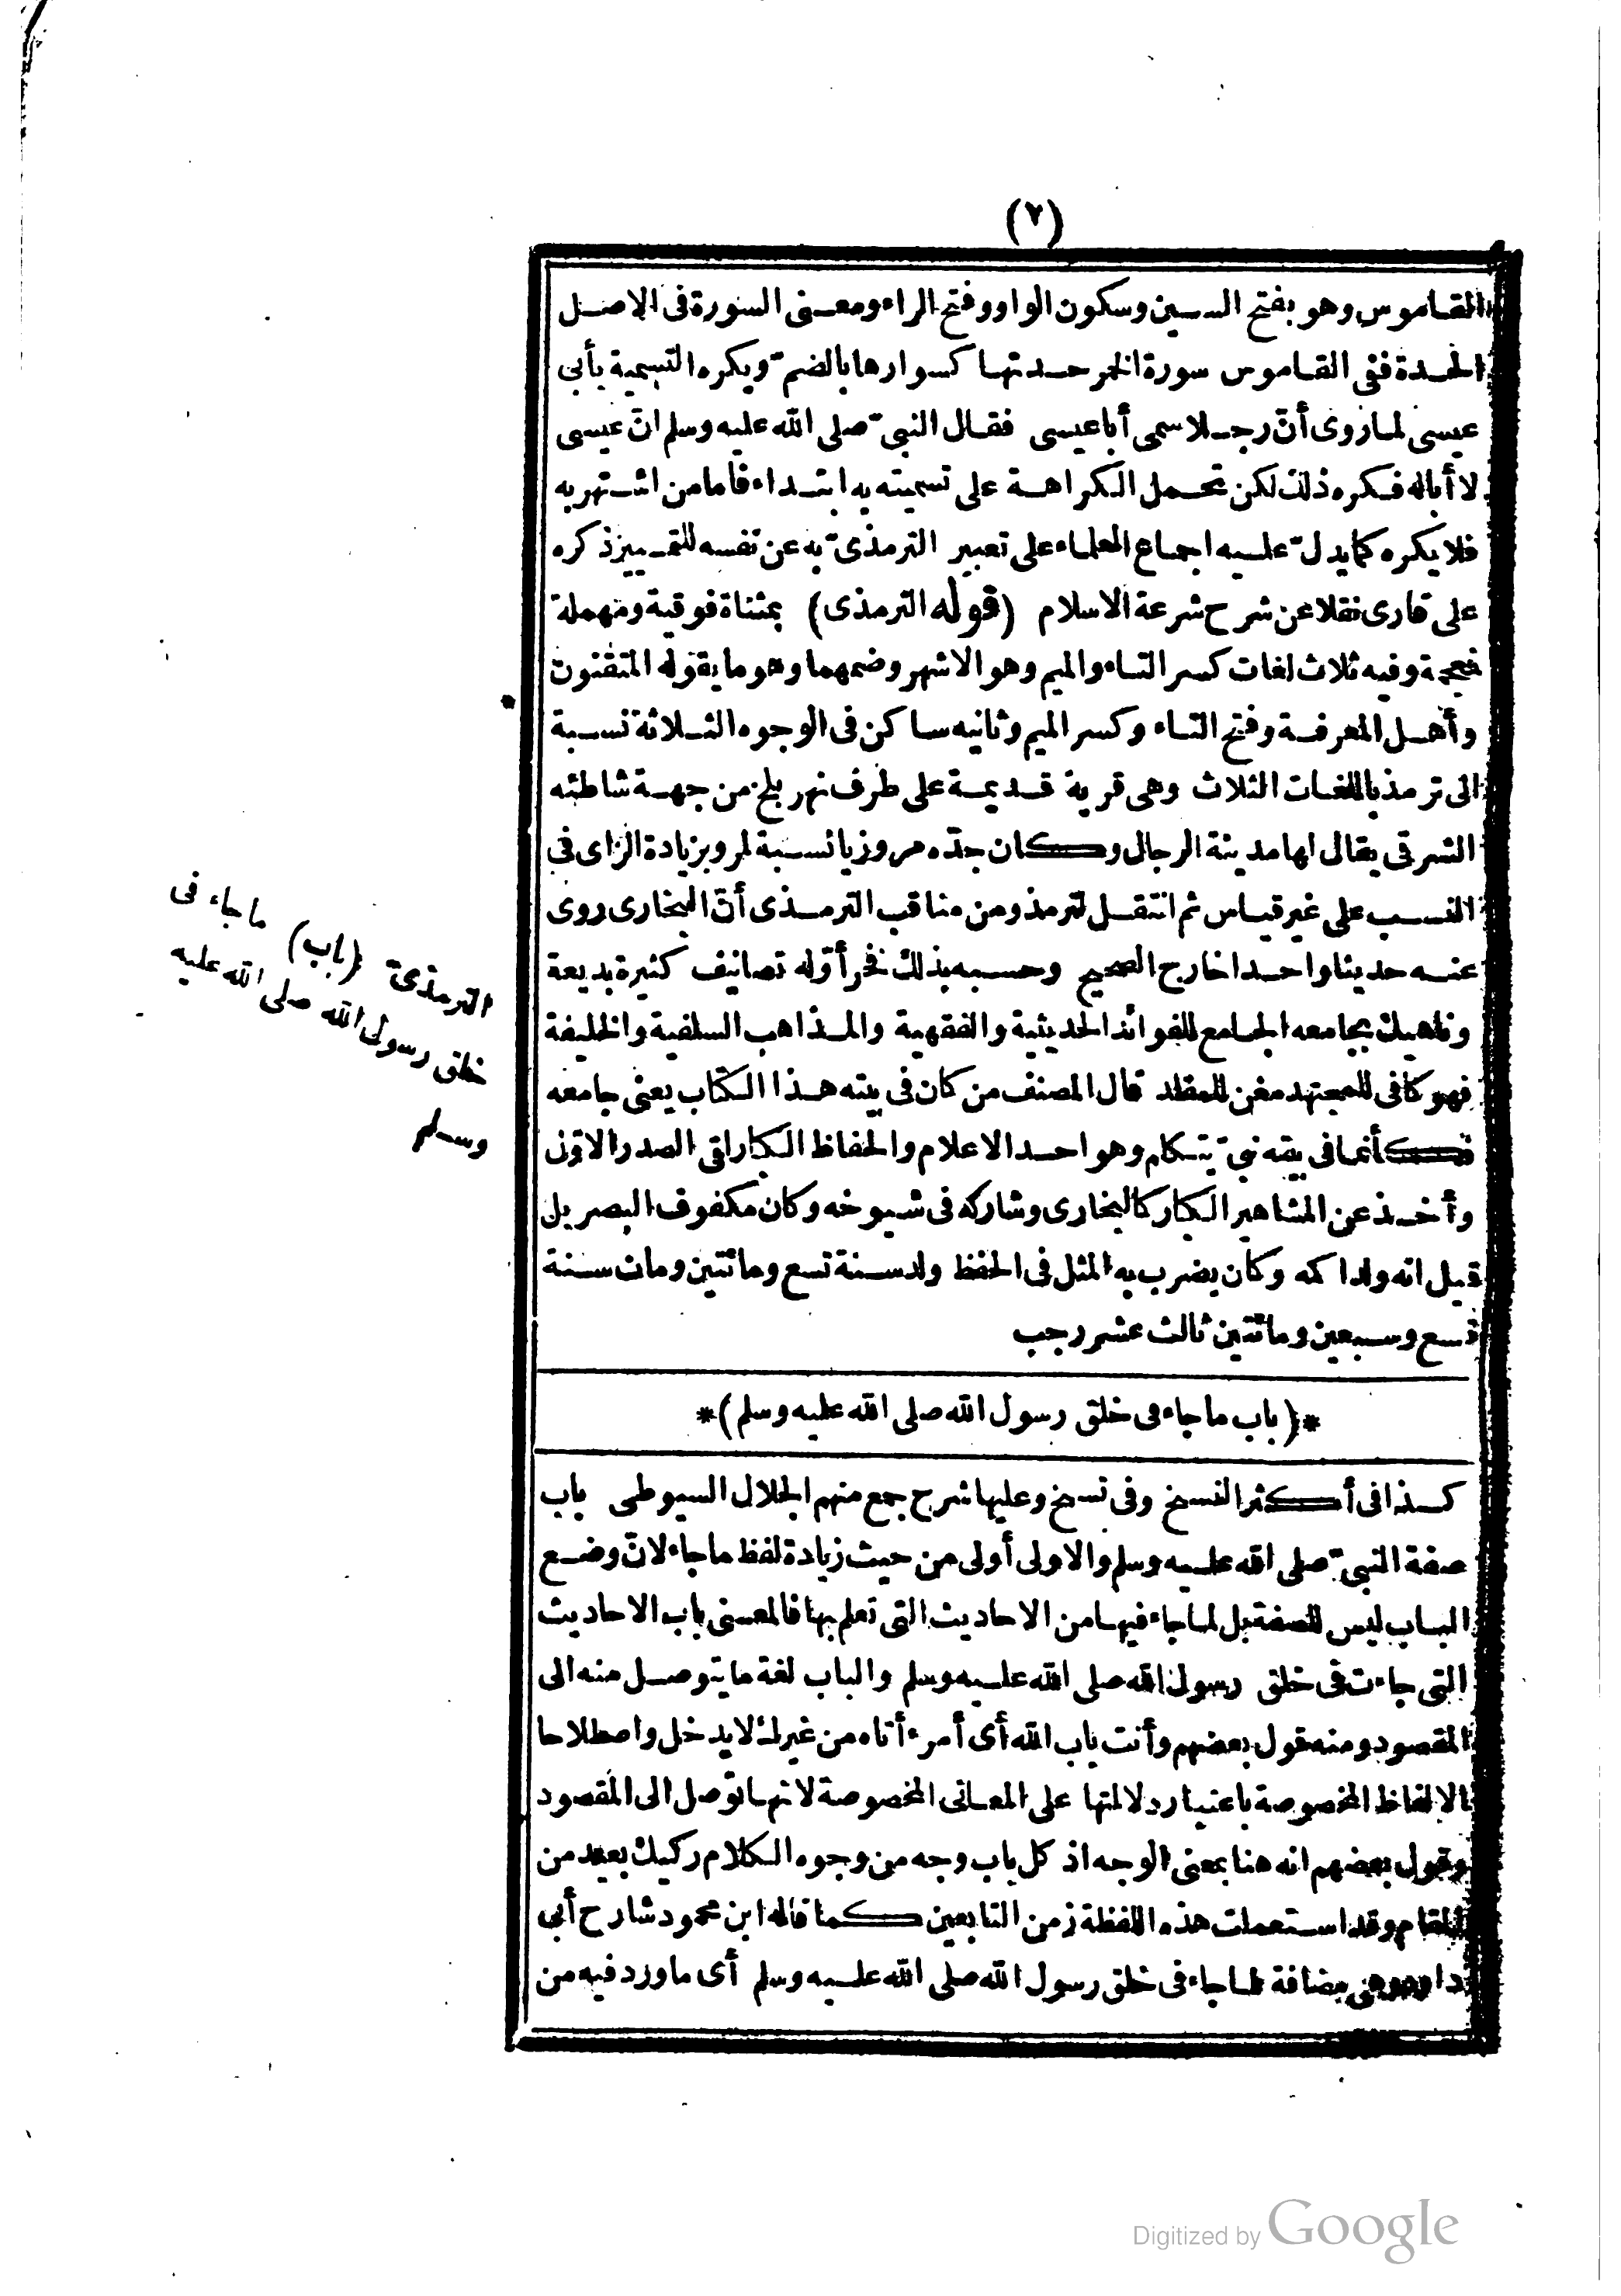 (٧)
القاموس وهو بفتح السين وسكون الواو وفتح الراء ومعنى السورة فى الاصل
الحدة ففى القاموس سورة الخمر حدتها كسوارها بالضم ويكره التسمية بأبى
عيسى لما روى أنّ رجلا سمى أبا عيسى فقال النبىّ صلى الله عليه وسلم انّ عيسى
لا أباله فكره ذلك لكن تحمل الكراهة على تسميته به ابتداء فأما من اشتهر به
فلا يكره كما يدلّ عليه اجماع العلماء على تعبير الترمذىّ به عن نفسه للتمييز ذكره
على قارى نقلا عن شرح شرعة الاسلام (قوله الترمذى) بمثناة فوقية ومهملة
فمعجمة وفيه ثلاث لغات كسر التاء والميم وهو الاشهر وضمهما وهو ما يقوله المتقنون
وأهل المعرفة وفتح التاء وكسر الميم وثانيه ساكن فى الوجوه الثلاثة نسبة
الى ترمذ باللغات الثلاث وهى قرية قديمة على طرف نهر بلخ من جهة شاطئه
الشرقى يقال لها مدينة الرجال وكان جدّه مروزيا نسبة لمرو بزيادة الزاى فى
النسب على غير قياس ثم انتقل لترمذ ومن مناقب الترمذى أنّ البخارى روى
عنه حديثا واحدا خارج الصحيح وحسبه بذلك فخرا وله تصانيف كثيرة بديعة
وناهيك بجامعه الجامع للفوائد الحديثية والفقهية والمذاهب السلفية والخليفة
فهو كافى للمجتهد مغن للمقلد قال المصنف من كان فى بيته هذا الكتاب يعنى جامعه
فكأنما فى بيته نبىّ يتكلم وهو احد الاعلام والحفاظ الكبار لقى الصدر الاوّل
وأخذ عن المشاهير الكبار كالبخارى وشاركه فى شيوخه وكان مكفوف البصر بل
قيل انه ولد اكمه وكان يضرب به المثل فى الحفظ ولد سنة تسع ومائتين ومات سنة
تسع وسبعين ومائتين ثالث عشر رجب
*(باب ما جاء فى خلق رسول الله صلى الله عليه وسلم)*
كذا فى أكثر النسخ وفى نسخ وعليها شرح جمع منهم الجلال السيوطى باب
صفة النبىّ صلى الله عليه وسلم والاولى أولى من حيث زيادة لفظ ما جاء لانّ وضع
الباب ليس للصفة بل لما جاء فيها من الاحاديث التى تعلم بها فالمعنى باب الاحاديث
التى جاءت فى خلق رسول الله صلى الله عليه وسلم والباب لغة ما يتوصل منه الى
المقصود ومنه قول بعضهم وأنت باب الله أى أمرء أتاه من غيرك لا يدخل واصطلاحا
الالفاظ المخصوصة باعتبار دلالتها على المعانى المخصوصة لانها توصل الى المقصود
وقول بعضهم انه هنا بمعنى الوجه اذ كل باب وجه من وجوه الكلام ركيك بعيد من
المقام وقد استعملت هذه اللفظة زمن التابعين كما قاله ابن محمود شارح أبى
داود وهى مضافة لما جاء فى خلق رسول الله صلى الله عليه وسلم أى ما ورد فيه من
الترمذىّ (باب) ما جاء فى
خلق رسول الله صلى الله عليه
وسلم
*
Digitized by Google